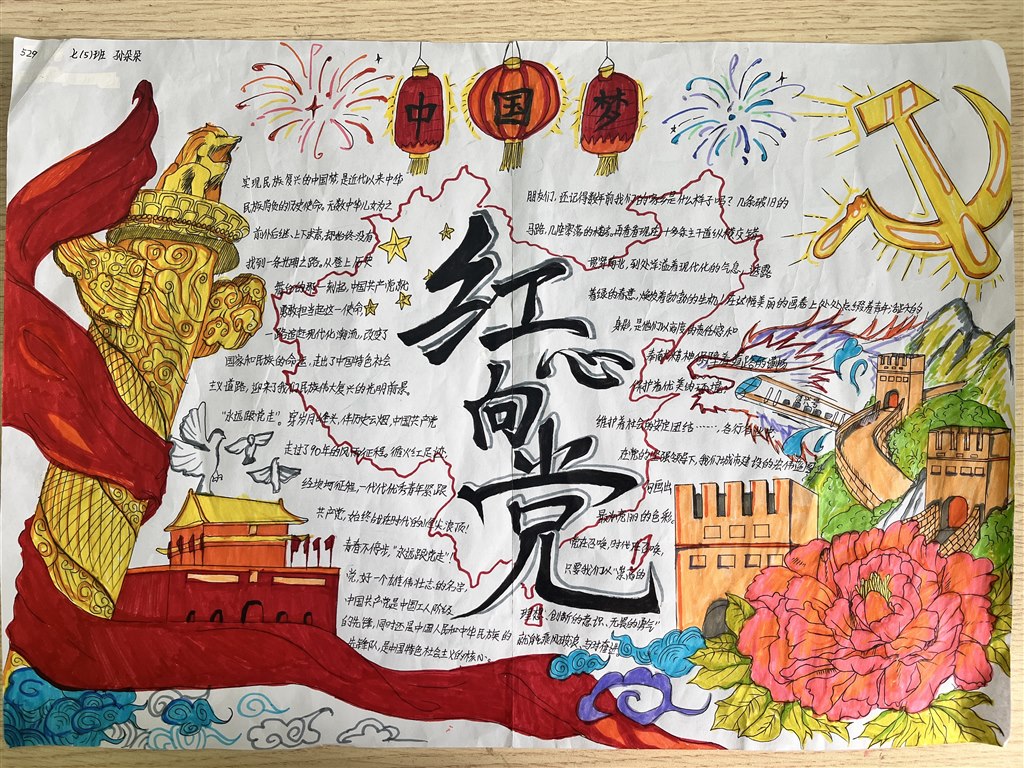 529 七(5)班 孙朵朵
中国梦
红心向党
实现民族复兴的中国梦,是近代以来中华
民族肩负的历史使命。无数中华儿女为之
前仆后继、上下求索,却始终没有
找到一条光明之路。从登上历史
舞台的那一刻起,中国共产党就
勇敢担当起这一使命
一路追赶现代化潮流,改变了
国家和民族的命运,走出了中国特色社会
主义道路,迎来了我们民族伟大复兴的光明前景。
"永远跟党走"。穿岁月的尽头,伴历史云烟,中国共产党
走过了90年的风雨征程。循火红足迹
经坎坷征程,一代代优秀青年紧跟
共产党,始终站在时代的浪尖潮顶!
青春不停步,"永远跟党走"
党,好一个雄伟壮志的名字,
中国共产党是中国工人阶级
的先锋,同时还是中国人民和中华民族的
先锋队,是中国特色社会主义的核心.
朋友们,还记得数年前我们的家乡是什么样子吗?几条破旧的
马路,几座零落的楼房,再看看现在十多年主干道纵横交错
贯穿南北,到处洋溢着现代化的气息,透露
着绿的春意,焕发着勃勃的生机!在这幅美丽的画卷上处处点缀着青年志愿者的
身影,是他们以高度的责任感和
奉献精神
维护着优美的环境,
维护着社会的安定团结……,各行各业
在党的坚强领导下,我们城市建设的宏伟蓝图
句画出
最为亮丽的色彩。
党在召唤,时代在召唤,
只要我们以"崇高的
理想、创新的意识、无畏的勇气"
就能乘风破浪、与时奋进